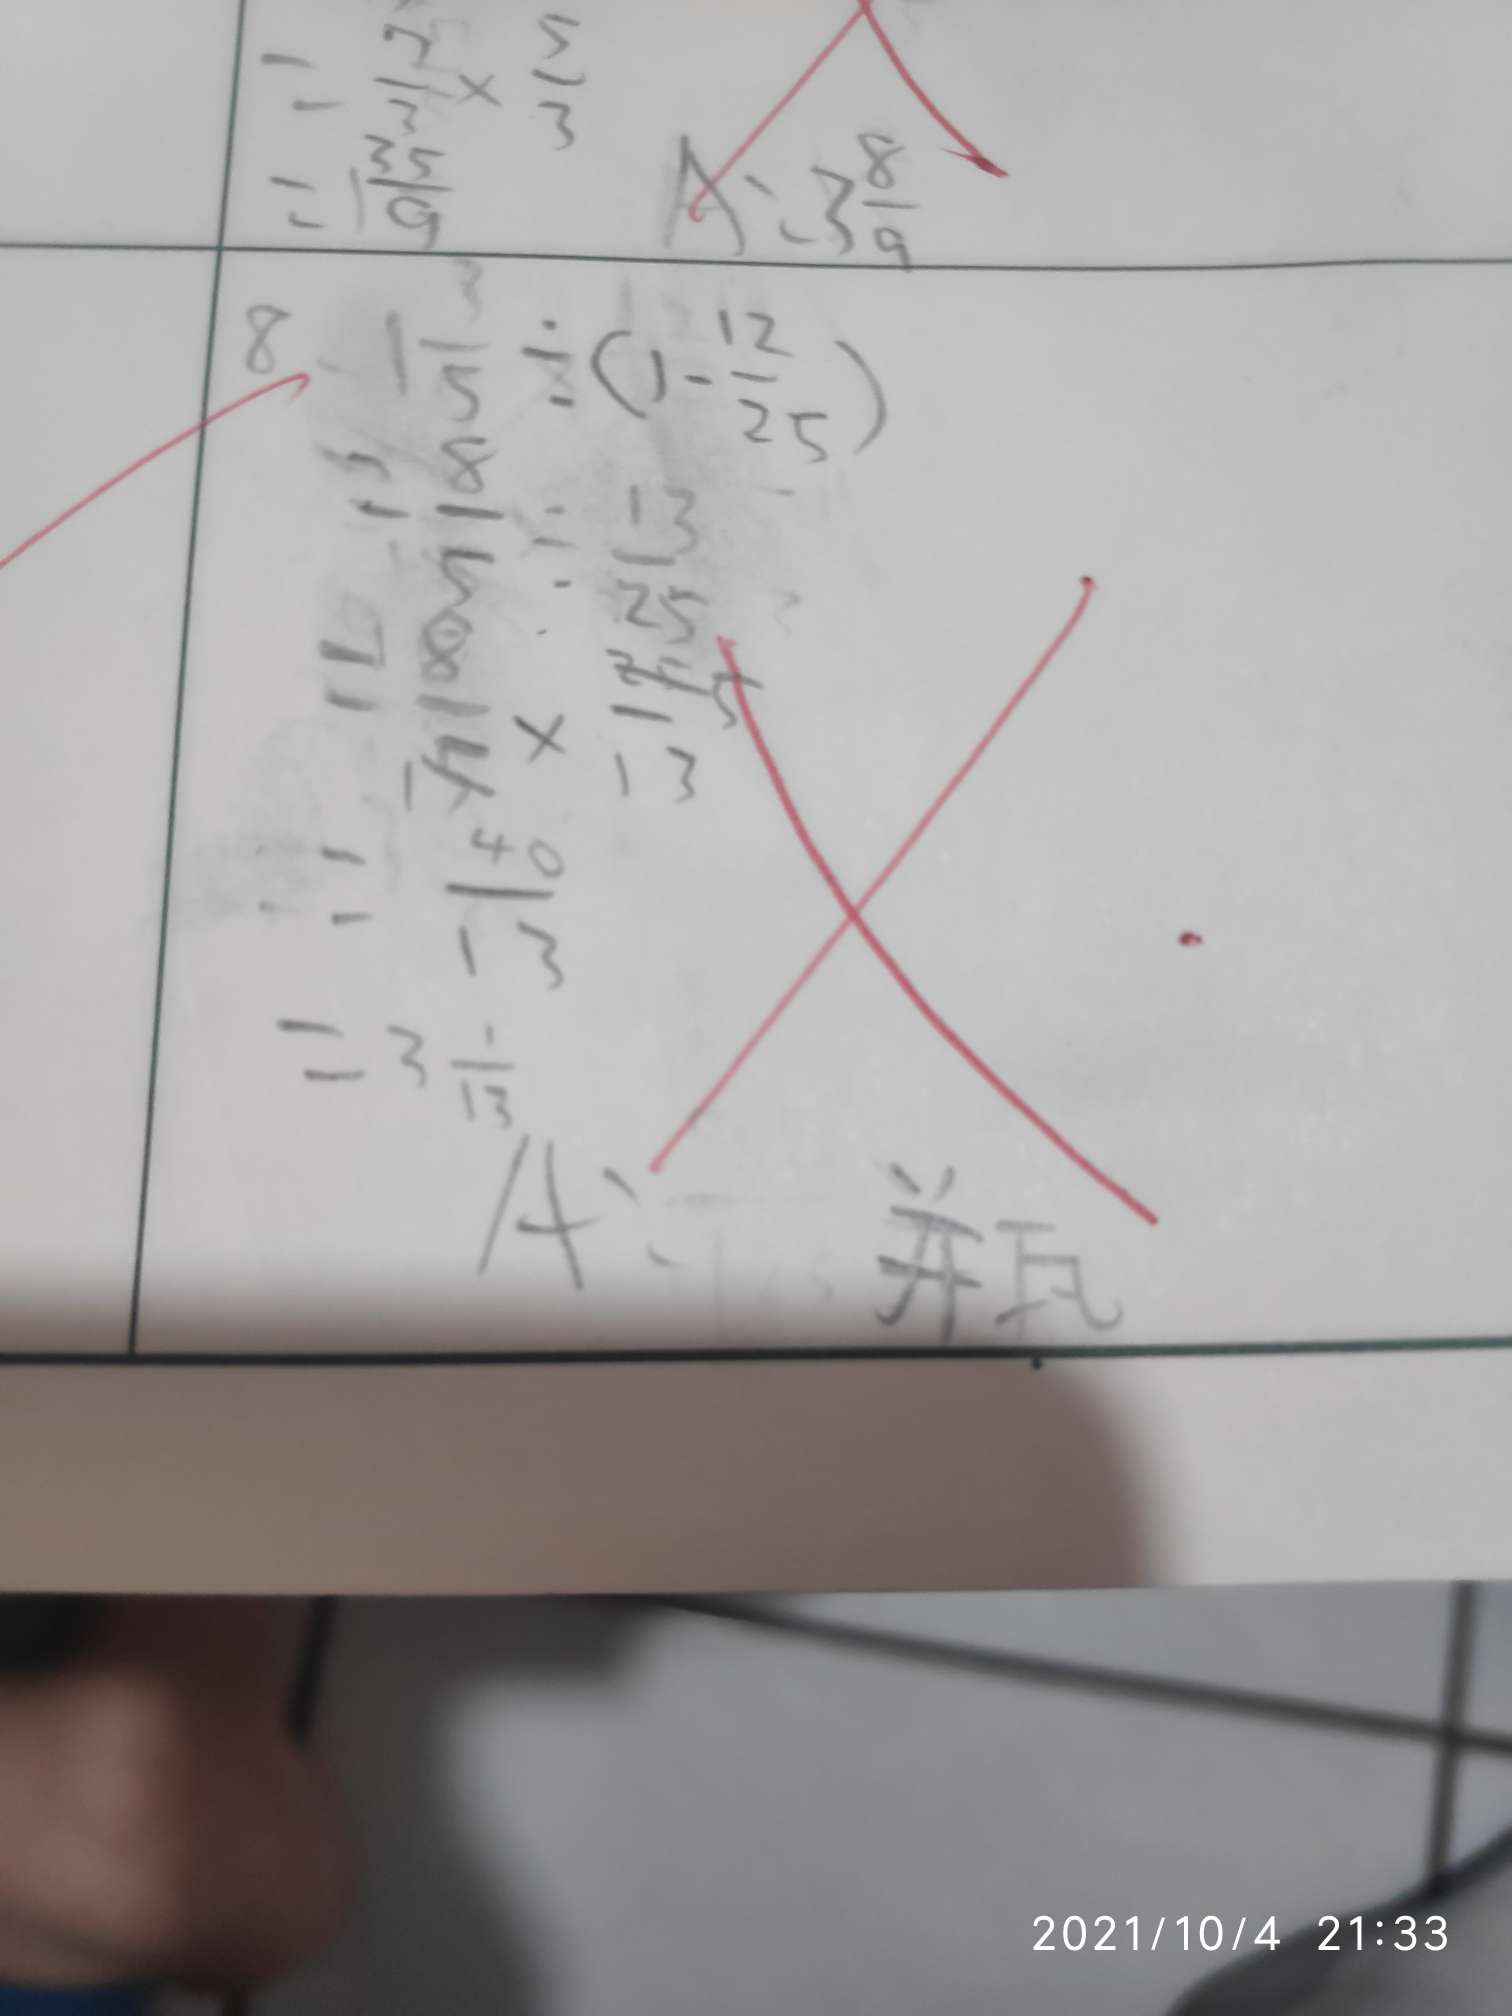 5/3
×
=
= 35/9
A: 3 8/9
8
1 3/5 ÷ (1 - 12/25)
= 8/5 ÷ 13/25
= 8/5 × 25/13
= 40/13
= 3 1/13
A:
并瓦
2021/10/4 21:33